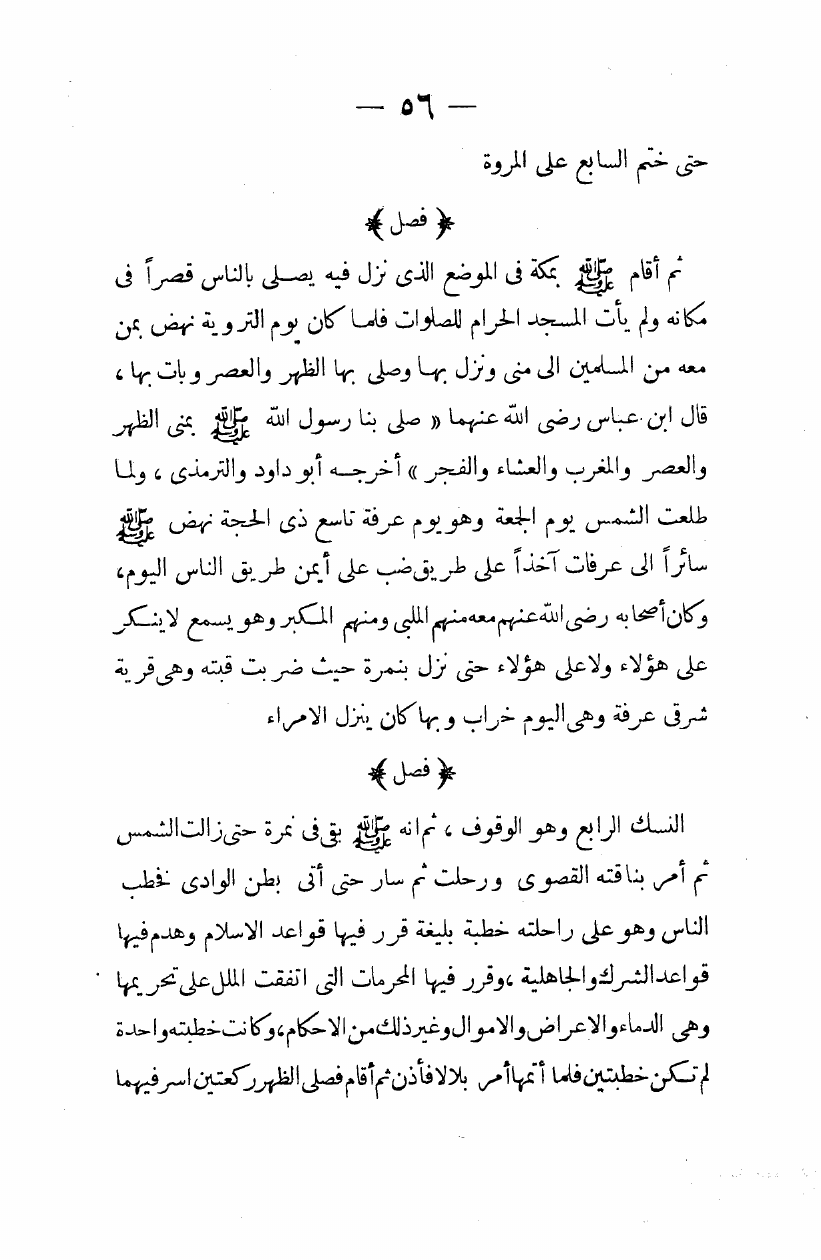 — ٥٦ —
حتى ختم السابع على المروة
﴿ فصل ﴾
ثم أقام ﷺ بمكة فى الموضع الذى نزل فيه يصلى بالناس قصراً فى
مكانه ولم يأت المسجد الحرام للصلوات فلما كان يوم التروية نهض بمن
معه من المسلمين الى منى ونزل بها وصلى بها الظهر والعصر وبات بها ،
قال ابن عباس رضى الله عنهما « صلى بنا رسول الله ﷺ بمنى الظهر
والعصر والمغرب والعشاء والفجر » أخرجه أبو داود والترمذى ، ولما
طلعت الشمس يوم الجمعة وهو يوم عرفة تاسع ذى الحجة نهض ﷺ
سائراً الى عرفات آخذاً على طريق ضب على أيمن طريق الناس اليوم،
وكان أصحابه رضى الله عنهم معه منهم الملبى ومنهم المكبر وهو يسمع لا ينكر
على هؤلاء ولا على هؤلاء حتى نزل بنمرة حيث ضربت قبته وهى قرية
شرقى عرفة وهى اليوم خراب وبها كان ينزل الامراء
﴿ فصل ﴾
النسك الرابع وهو الوقوف ، ثم انه ﷺ بقى فى نمرة حتى زالت الشمس
ثم أمر بناقته القصوى ورحلت ثم سار حتى أتى بطن الوادى فخطب
الناس وهو على راحلته خطبة بليغة قرر فيها قواعد الاسلام وهدم فيها
قواعد الشرك والجاهلية ،وقرر فيها المحرمات التى اتفقت الملل على تحريمها
وهى الدماء والاعراض والاموال وغير ذلك من الاحكام، وكانت خطبته واحدة
لم تكن خطبتين فلما أتمها أمر بلالا فأذن ثم أقام فصلى الظهر ركعتين اسر فيهما